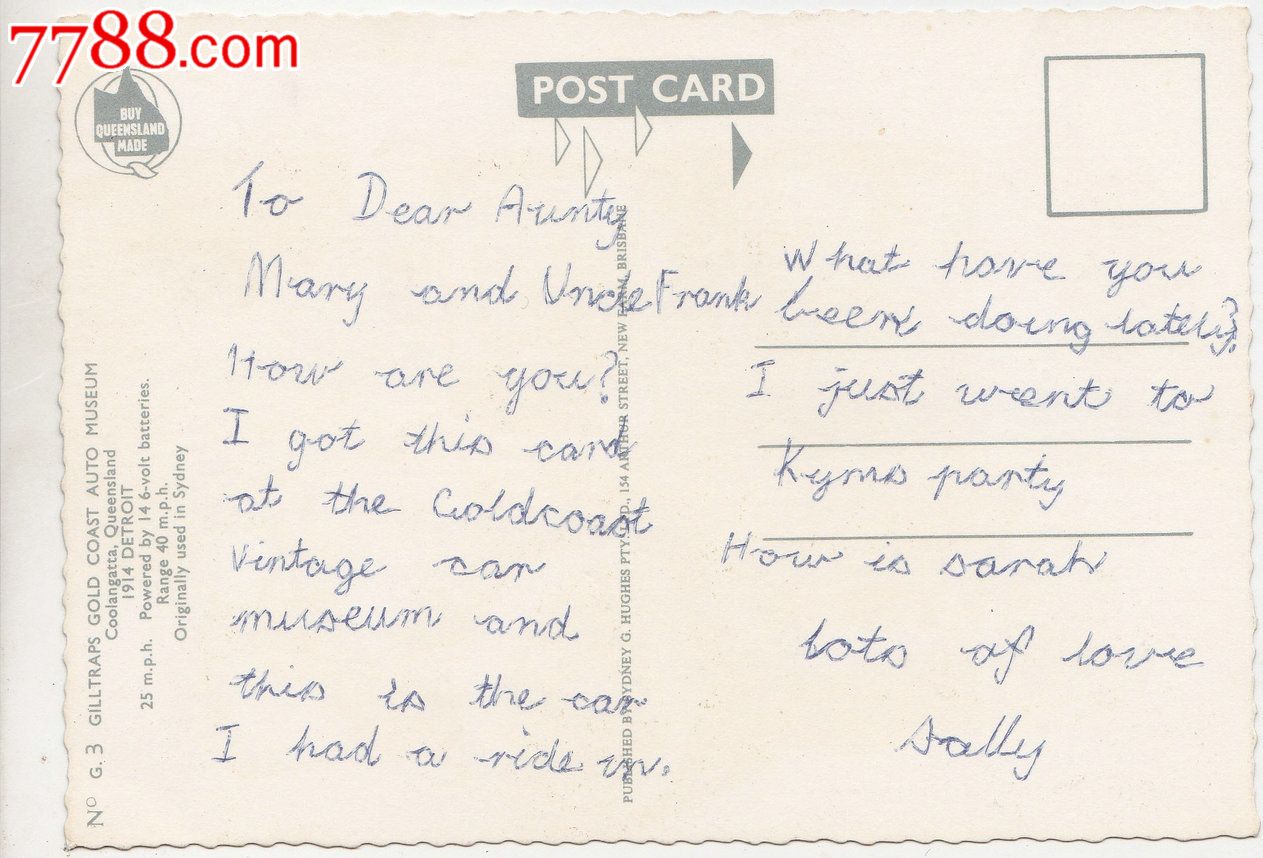 7788.com
BUY
QUEENSLAND
MADE
POST CARD
To Dear Aunty
Mary and Uncle Frank
How are you?
I got this card
at the Goldcoast
vintage car
museum and
this is the car
I had a ride in.
What have you
been doing lately?
I just went to
Kyms party
How is sarah
lots of love
Sally
Nº G. 3 GILLTRAPS GOLD COAST AUTO MUSEUM
Coolangatta, Queensland
1914 DETROIT
25 m.p.h. Powered by 14 6-volt batteries.
Range 40 m.p.h.
Originally used in Sydney
PUBLISHED BY SYDNEY G. HUGHES PTY. LTD., 154 ARTHUR STREET, NEW FARM, BRISBANE